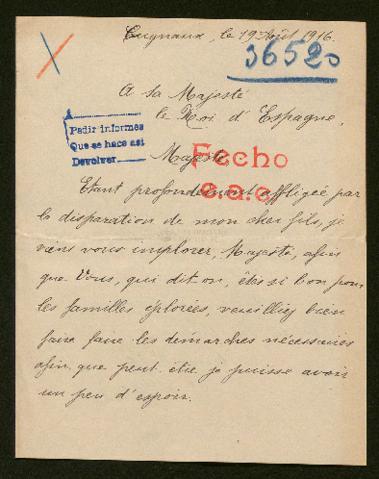 Cugnaux, le 19 Août 1916.
36520
A sa Majesté
le Roi d'Espagne,
Pedir informes
Que se hace asi
Devolver
Majesté
Fecho
e.a.c.
Etant profondément affligée par
la disparation de mon cher fils, je
viens vous implorer, Majesté, afin
que Vous, qui dit on, êtes si bon pour
les familles éplorées, veuilliez bien
faire faire les démarches nécessaires
afin que peut être je puisse avoir
un peu d'espoir.